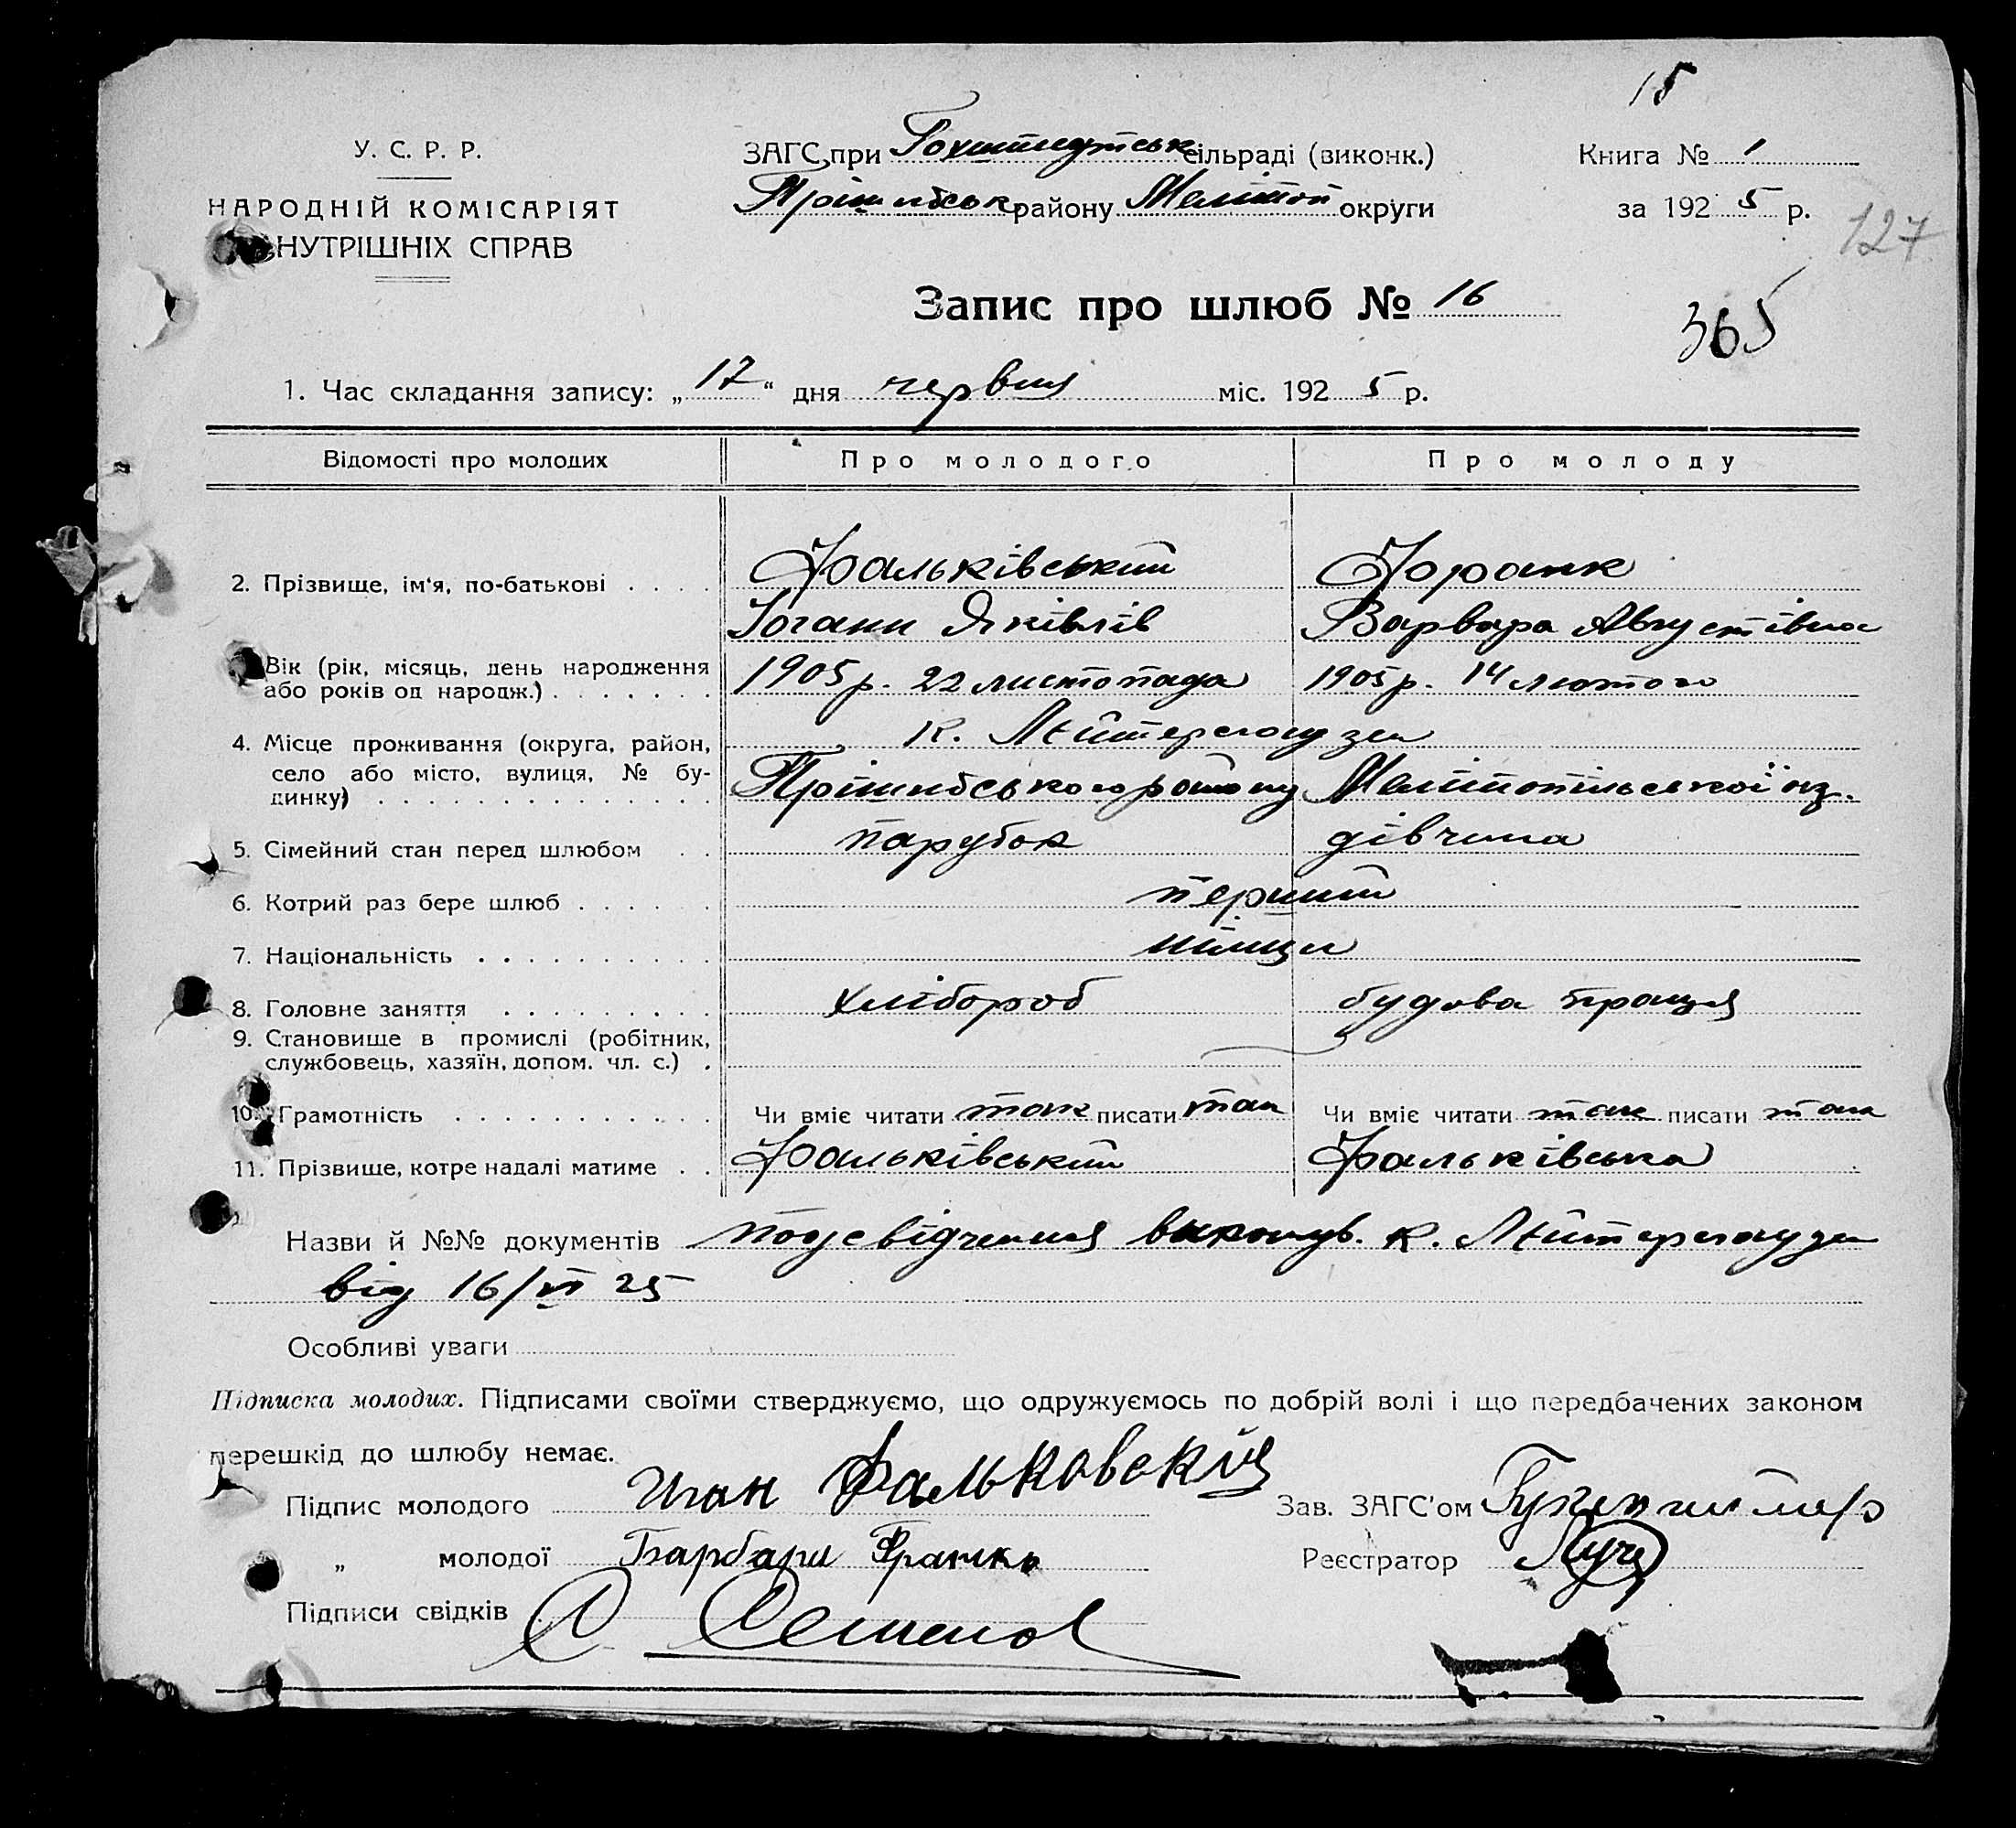 15
У. С. Р. Р.
НАРОДНІЙ КОМІСАРІЯТ
ВНУТРІШНІХ СПРАВ
ЗАГС при Гохштедтськ сільраді (виконк.)
Прішибськ району Мелітоп округи
Книга № 1
за 1925 р.
127
Запис про шлюб № 16
365
1. Час складання запису: „17“ дня червня міс. 1925 р.
Відомості про молодих Про молодого Про молоду
2. Прізвище, ім'я, по-батькові . . . . Фальківський Франк
Йогани Яківлів Варвара Августівна
Вік (рік, місяць, день народження
або років од народж.) . . . . . . . 1905 р. 22 листопада 1905 р. 14 лютого
4. Місце проживання (округа, район,
село або місто, вулиця, № бу-
динку) . . . . . . . . . . . . . .
к. Лейтерсгаузен
Прішибського району Мелітопільської окр.
5. Сімейний стан перед шлюбом . . парубок дівчина
6. Котрий раз бере шлюб . . . . . . перший
7. Національність . . . . . . . . . . німци
8. Головне заняття . . . . . . . . . хлібороб праця
9. Становище в промислі (робітник,
службовець, хазяїн, допом. чл. с.) .
10. Грамотність . . . . . . . . . . . Чи вміє читати так писати так Чи вміє читати так писати так
11. Прізвище, котре надалі матиме . . Фальківський Фальківська
Назви й №№ документів посвідчення виконув. к. Лейтерсгаузен
від 16/VI 25
Особливі уваги
Підписка молодих. Підписами своїми стверджуємо, що одружуємось по добрій волі і що передбачених законом
перешкід до шлюбу немає.
Підпис молодого Иган Фальковский
Зав. ЗАГС'ом
„ молодої Барбара Франкъ
Реєстратор
Підписи свідків С. Семенов